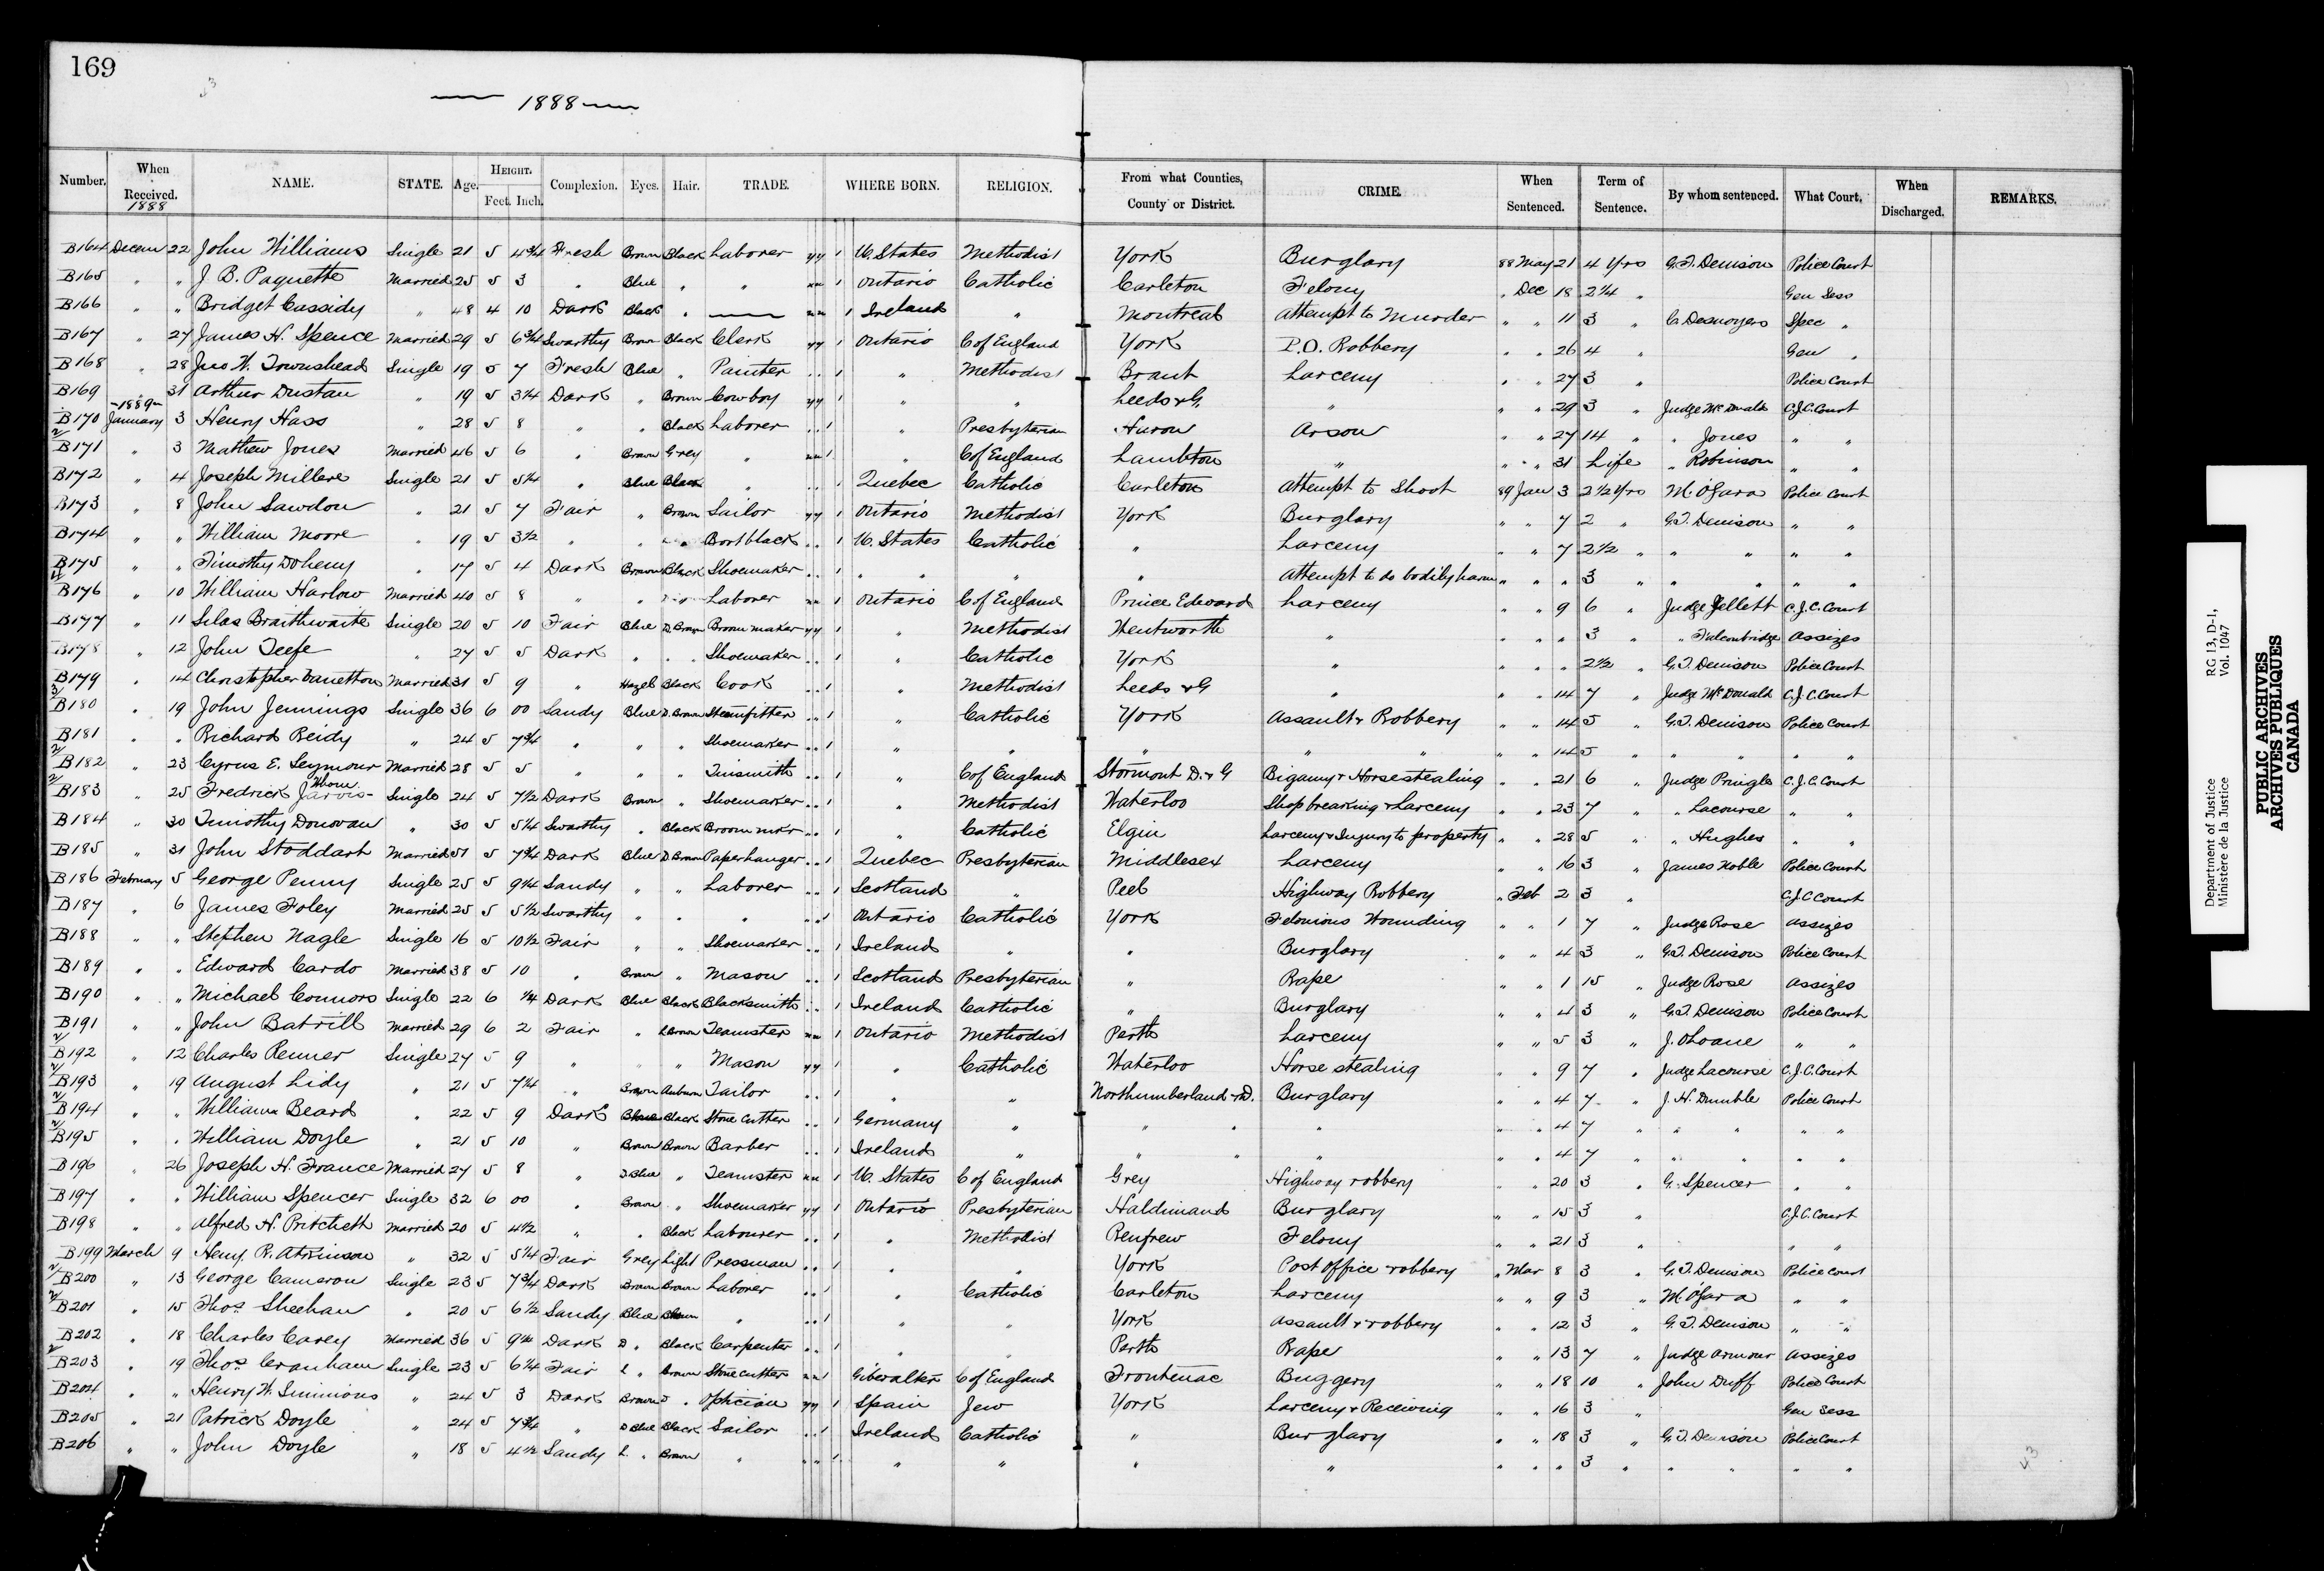 169
1888
Number. When Received. 1888 NAME. STATE. Age. HEIGHT. Feet. Inch. Complexion. Eyes. Hair. TRADE. WHERE BORN. RELIGION. From what Counties, County or District. CRIME. When Sentenced. Term of Sentence. By whom sentenced. What Court. When Discharged. REMARKS.
B164 Decem 22 John Williams Single 21 5 4 3/4 Fresh Brown Black Laborer yy 1 U. States Methodist York Burglary 88 May 21 4 Yrs G.T. Denison Police Court
B165 " " J. B. Paquette Married 25 5 3 " Blue " " 1 Ontario Catholic Carleton Felony " Dec 18 2 1/4 " Gen Sess
B166 " " Bridget Cassidy " 48 4 10 Dark Black " — 1 Ireland " Montreal Attempt to Murder " " 11 3 " C. Desnoyers Spec "
B167 " 27 James H. Spence Married 29 5 6 3/4 Swarthy Brown Black Clerk yy 1 Ontario C of England York P.O. Robbery " " 26 4 " Gen "
B168 " 28 Jno W. Townshead Single 19 5 7 Fresh Blue " Painter " " 1 " Methodist Brant Larceny " " 27 3 " Police Court
B169 " 31 Arthur Dustan " 19 5 3 1/4 Dark " Brown Cowboy yy 1 " " Leeds & G. " " " 29 3 " Judge McDonald C.J.C. Court
—1889—
B170 January 3 Henry Hass " 28 5 8 " " Black Laborer " " 1 " Presbyterian Huron Arson " " 27 14 " " Jones " "
2/ B171 " 3 Mathew Jones Married 46 5 6 " Brown Grey " 1 " C of England Lambton " " " 31 Life " Robinson " "
B172 " 4 Joseph Millere Single 21 5 5 1/4 " Blue Black " " " 1 Quebec Catholic Carleton Attempt to Shoot 89 Jan 3 2 1/2 Yrs M. O'Gara Police Court
B173 " 8 John Sawdon " 21 5 7 Fair " Brown Sailor yy 1 Ontario Methodist York Burglary " " 7 2 " G.T. Denison " "
B174 " " William Moore " 19 5 3 1/2 " " " Bootblack " " 1 U. States Catholic " Larceny " " 7 2 1/2 " " " " "
B175 " " Timothy Doheny " 17 5 4 Dark Brown Black Shoemaker " " 1 " " " " Attempt to do bodily harm " " " 3 " " " " "
B176 " 10 William Harlow Married 40 5 8 " " Laborer 1 Ontario C of England Prince Edward Larceny " " 9 6 " Judge Jellett C.J.C. Court
B177 " 11 Silas Braithwaite Single 20 5 10 Fair Blue D. Brown Broom maker yy 1 " Methodist Wentworth " " " " 3 " " Falconbridge Assizes
B178 " 12 John Teefe " 27 5 5 Dark " " Shoemaker " " 1 " Catholic York " " " " 2 1/2 " G.T. Denison Police Court
B179 " 14 Christopher Vanetton Married 31 5 9 " Hazel Black Cook " " 1 " Methodist Leeds & G " " " 14 7 " Judge McDonald C.J.C. Court
3/ B180 " 19 John Jennings Single 36 6 00 Sandy Blue D. Brown Steamfitter " " 1 " Catholic York Assault & Robbery " " 14 5 " G.T. Denison Police Court
B181 " " Richard Reidy " 24 5 7 3/4 " " " Shoemaker " " 1 " " " " " " 14 5 " " " " "
2/ B182 " 23 Cyrus E. Seymour Married 28 5 5 " " " Tinsmith " " 1 " C of England Stormont D. & G Bigamy & Horsestealing " " 21 6 " Judge Pringle C.J.C. Court
2/ B183 " 25 Fredrick Jarvis Single 24 5 7 1/2 Dark Brown " Shoemaker " " 1 " Methodist Waterloo Shopbreaking & Larceny " " 23 7 " " Lacourse " "
B184 " 30 Timothy Donovan " 30 5 5 1/4 Swarthy " Black Broom mkr " " 1 " Catholic Elgin Larceny & Injury to property " " 28 5 " " Hughes " "
B185 " 31 John Stoddart Married 51 5 7 3/4 Dark Blue D Brown Paperhanger " " 1 Quebec Presbyterian Middlesex Larceny " " 16 3 " James Noble Police Court
B186 February 5 George Penny Single 25 5 9 1/4 Sandy " " Laborer " " 1 Scotland " Peel Highway Robbery " Feb 2 3 " C.J.C Court
B187 " 6 James Foley Married 25 5 5 1/2 Swarthy " " " " " 1 Ontario Catholic York Felonious Wounding " " 1 7 " Judge Rose Assizes
B188 " " Stephen Nagle Single 16 5 10 1/2 Fair " " Shoemaker " " 1 Ireland " " Burglary " " 4 3 " G.T. Denison Police Court
B189 " " Edward Cardo Married 38 5 10 " Brown " Mason " " 1 Scotland Presbyterian " Rape " " 1 15 " Judge Rose Assizes
B190 " " Michael Connors Single 22 6 1/4 Dark Blue Black Blacksmith " " 1 Ireland Catholic " Burglary " " 4 3 " G.T. Denison Police Court
B191 " " John Batrill Married 29 6 2 Fair " L Brown Teamster 1 Ontario Methodist Perth Larceny " " 5 3 " J. OLoane " "
2/ B192 " 12 Charles Renner Single 27 5 9 " " " Mason yy 1 " Catholic Waterloo Horse stealing " " 9 7 " Judge Lacourse C.J.C. Court
2/ B193 " 19 August Lidy " 21 5 7 1/4 " Brown Auburn Tailor " " 1 " " Northumberland & D. Burglary " " 4 7 " J. H. Dumble Police Court
2/ B194 " " William Beard " 22 5 9 Dark Black Stone Cutter " " 1 Germany " " " " " " 4 7 " " " " "
2/ B195 " " William Doyle " 21 5 10 " Brown Brown Barber " " 1 Ireland " " " " " " 4 7 " " " " "
B196 " 26 Joseph H. France Married 27 5 8 " D Blue " Teamster 1 U. States C of England Grey Highway robbery " " 20 3 " G. Spencer " "
B197 " " William Spencer Single 32 6 00 " Brown " Shoemaker yy 1 Ontario Presbyterian Haldimand Burglary " " 15 3 " C.J.C. Court
B198 " " Alfred H. Pritchett Married 20 5 4 1/2 " " Black Labourer " " 1 " Methodist Renfrew Felony " " 21 3 " " "
B199 March 9 Heny R. Atkinson " 32 5 5 1/4 Fair Grey Light Pressman " " 1 " " York Post office robbery " Mar 8 3 " G.T. Denison Police Court
2/ B200 " 13 George Cameron Single 23 5 7 3/4 Dark Brown Brown Laborer " " 1 " Catholic Carleton Larceny " " 9 3 " M. O'Gara " "
2/ B201 " 15 Thos Sheehan " 20 5 6 1/2 Sandy Blue " " " 1 " " York Assault & robbery " " 12 3 " G.T. Denison " "
B202 " 18 Charles Carey Married 36 5 9 Dark D " Black Carpenter " " 1 " " Perth Rape " " 13 7 " Judge Armour Assizes
2/ B203 " 19 Thos Cranham Single 23 5 6 1/4 Fair L " Brown Stonecutter 1 Giberalter C of England Frontenac Buggery " " 18 10 " John Duff Police Court
B204 " " Henry W. Simmions " 24 5 3 Dark Brown " Optician yy 1 Spain Jew York Larceny & Receiving " " 16 3 " Gen Sess
B205 " 21 Patrick Doyle " 24 5 7 3/4 " D Blue Black Sailor " " 1 Ireland Catholic " Burglary " " 18 3 " G.T. Denison Police Court
B206 " " John Doyle " 18 5 4 1/2 Sandy L. " Brown " " " 1 " " " " " " " 3 " " " " "
Department of Justice RG 13, D-1,
Ministère de la Justice Vol. 1047
PUBLIC ARCHIVES
ARCHIVES PUBLIQUES
CANADA